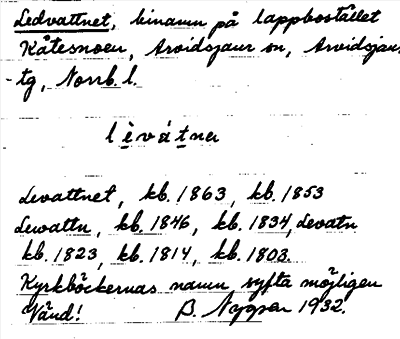 Ledvattnet, binamn på lappbostället
Kåtesnoen, Arvidsjaur sn, Arvidsjaurs
tg, Norrb. l.
lèvátnɐ
Levattnet, kb. 1863, kb. 1853
Lewattn, kb. 1846, kb. 1834, Levatn
kb. 1823, kb. 1814, kb. 1803.
Kyrkböckernas namn syfta möjligen
Vänd! B. 1932.